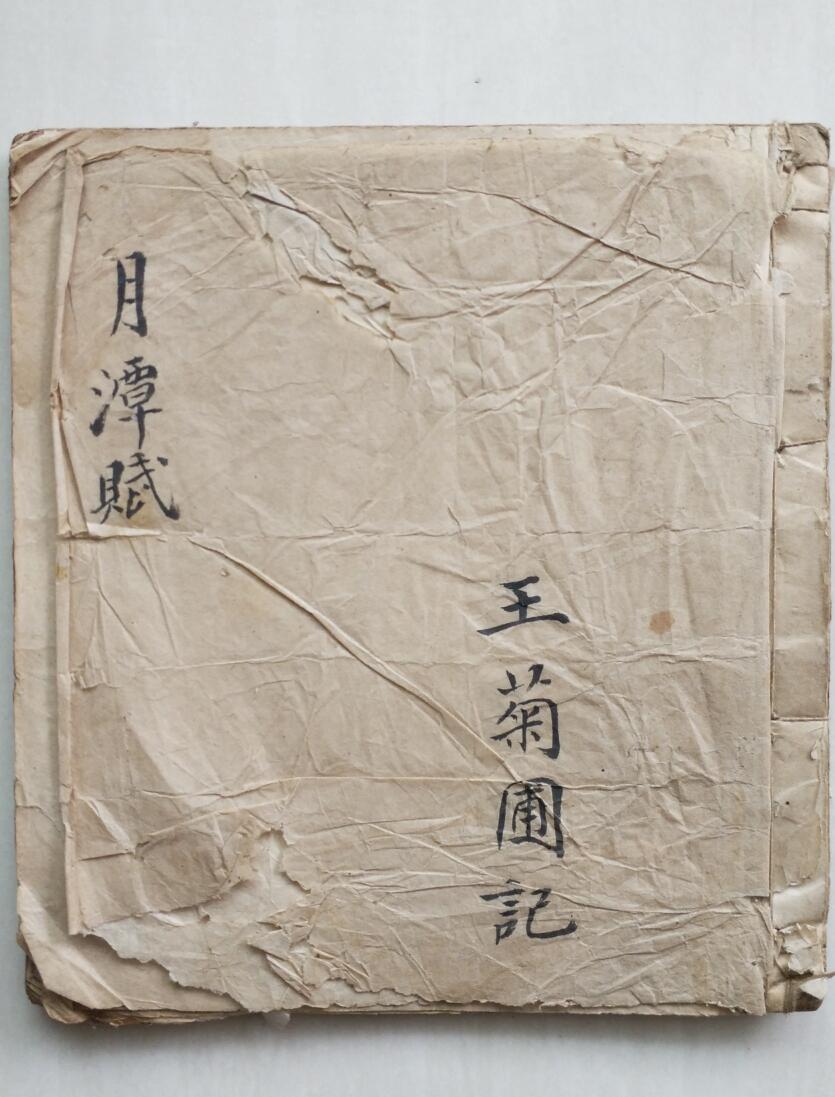 月潭賦
王菊圃記